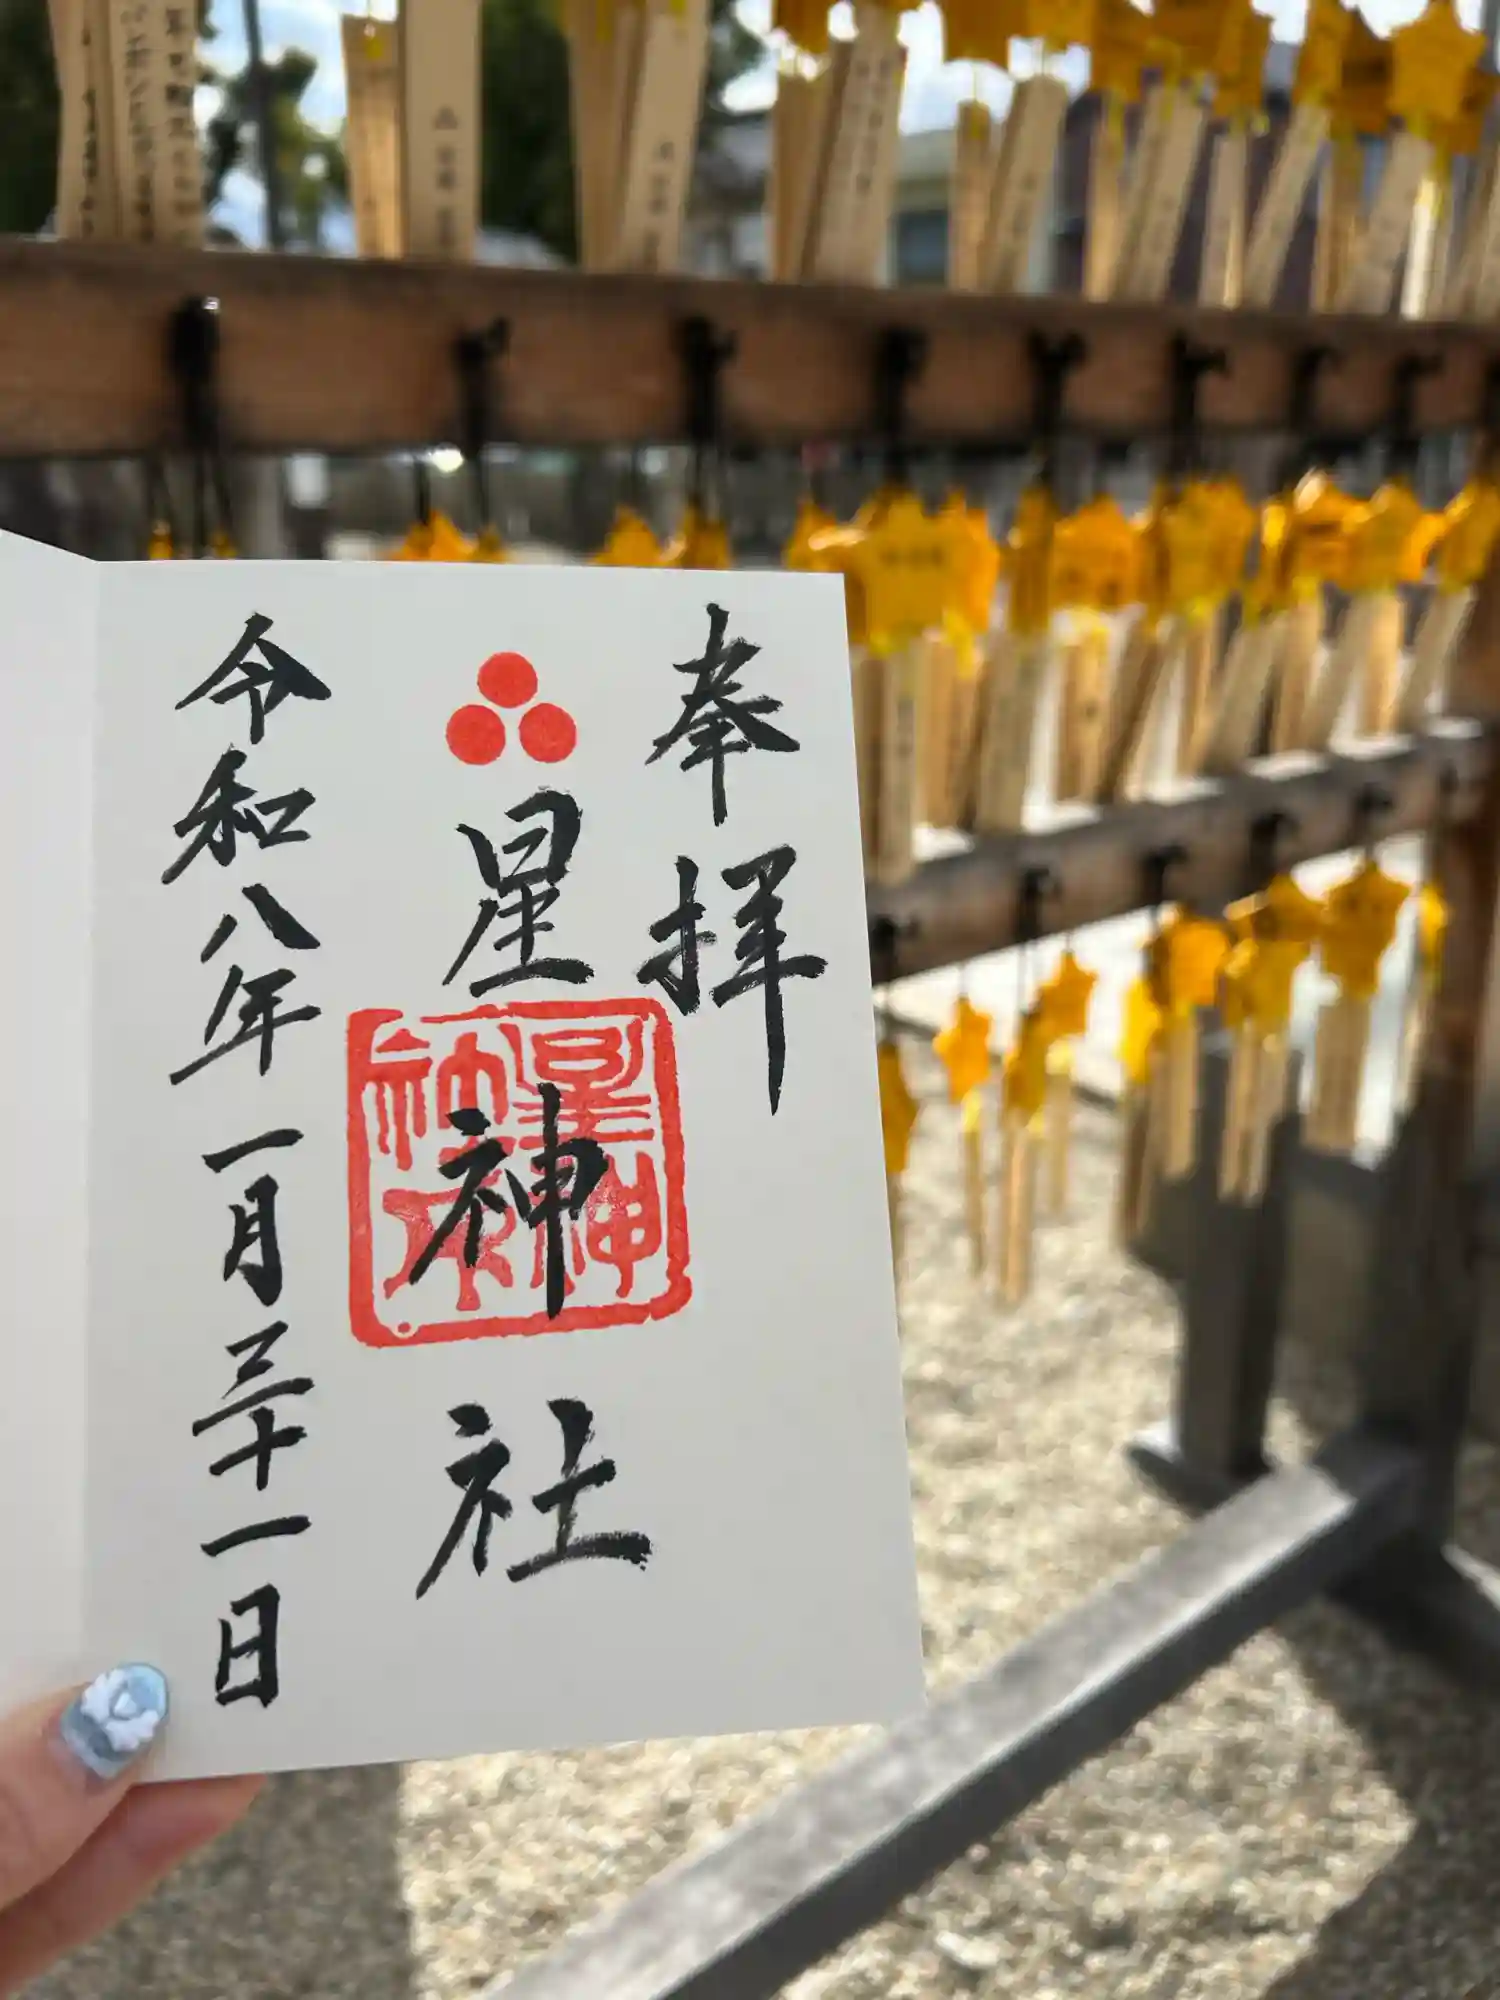 奉拝
星神社
星神
社印
令和八年一月三十一日